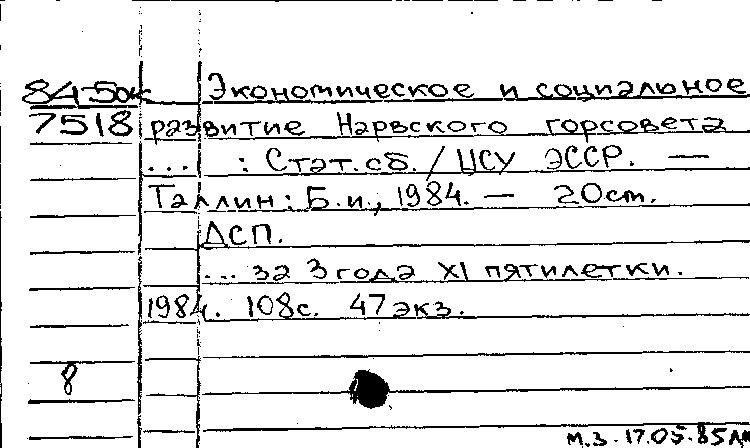 84-5ок Экономическое и социальное
7518 развитие Нарвского горсовета
... : Стат.сб. / ЦСУ ЭССР. —
Таллин: Б.и., 1984. — 20 см.
ДСП.
... за 3 года XI пятилетки.
1984. 108с. 47 экз.
8
М.З. 17.05.85